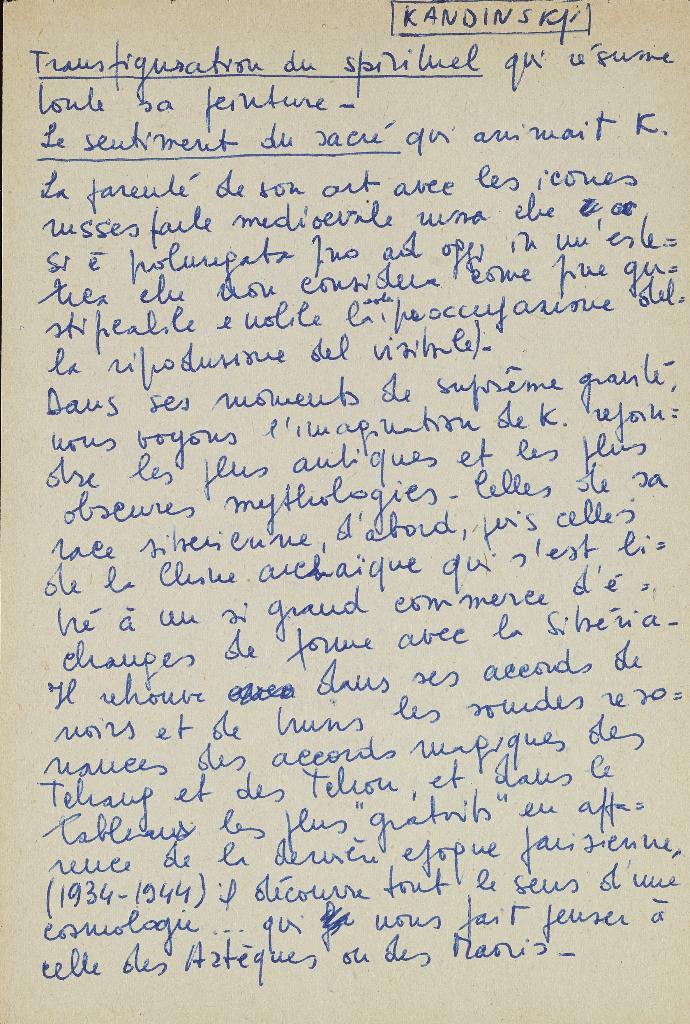 KANDINSKji
Transfiguration du spirituel qui résume
toute sa peinture -
Le sentiment du sacré qui animait K.
La parenté de son art avec les icones
russes (arte medioevale russa che
si è prolungata fino ad oggi in un'este=
tica che non considera come fine giu=
stificabile e nobile la sola preoccupazione del=
la riproduzione del visibile).
Dans ses moments de suprême gravité,
nous voyons l'imagination de K. rejoin=
dre les plus antiques et les plus
obscures mythologies - Celles de sa
race sibérienne, d'abord, puis celles
de la Chine archaïque qui s'est li=
vré à un si grand commerce d'é=
changes de forme avec la Sibéria -
Il retrouve dans ses accords de
noirs et de bruns les sourdes reso=
nances des accords magiques des
Tchang et des Tchou, et dans le
tableaux les plus "gratuits" en appa=
rence de la dernière epoque parisienne,
(1934-1944) il découvre tout le sens d'une
cosmologie ... qui nous fait penser à
celle des Aztèques ou des Maoris -